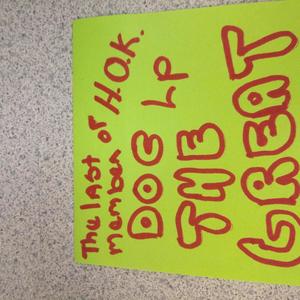 The last of H.O.K.
member LP
DOG
THE
GREAT